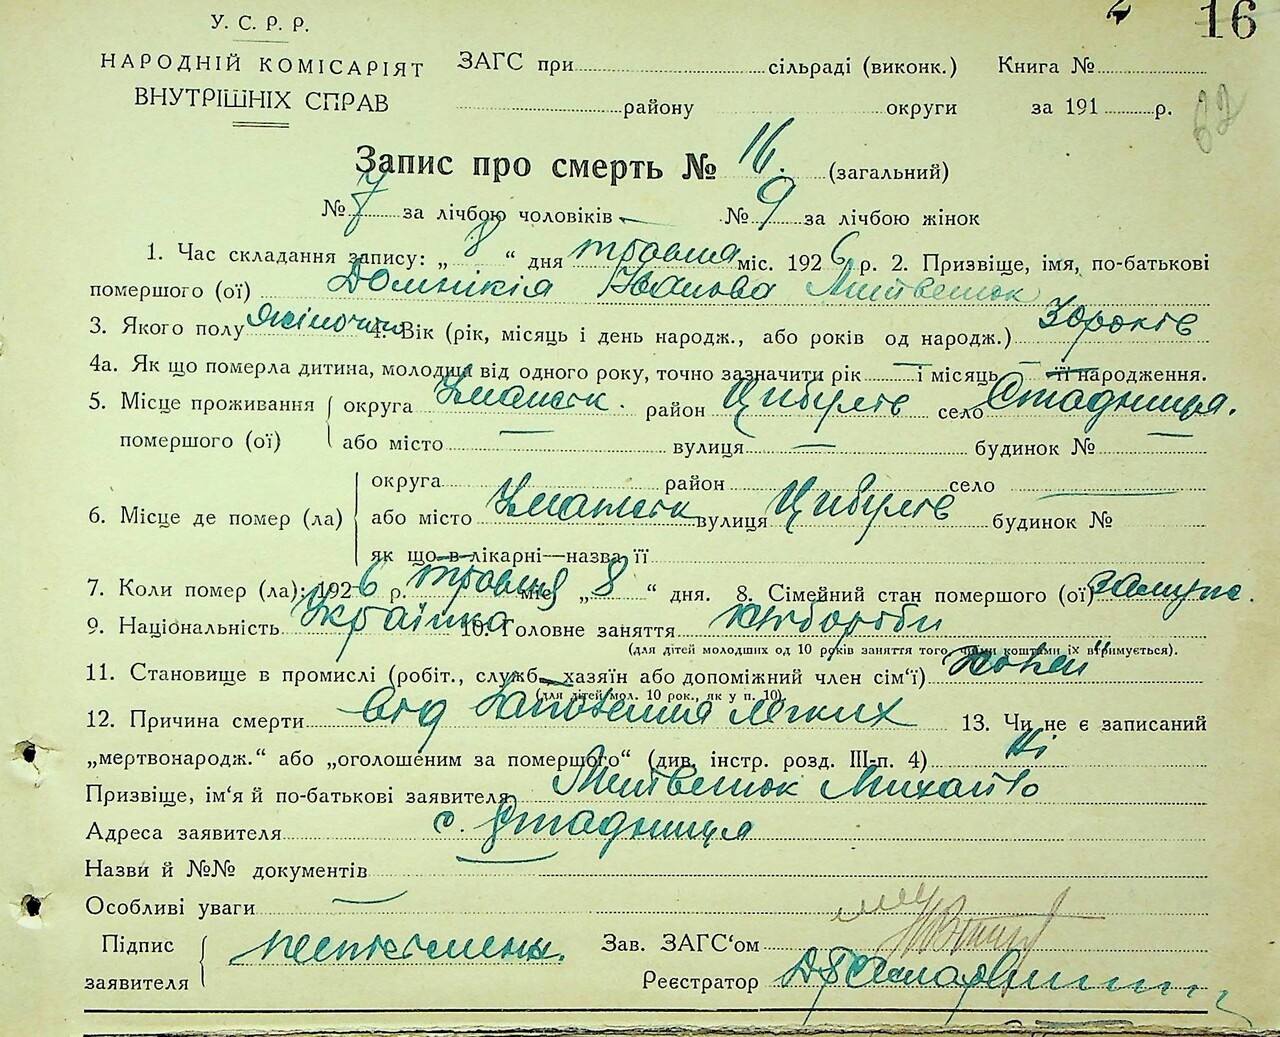 2 16
У. С. Р. Р.
НАРОДНІЙ КОМІСАРІЯТ
ВНУТРІШНІХ СПРАВ
ЗАГС при сільраді (виконк.) Книга №
району округи за 191 р.
62
Запис про смерть № 16. (загальний)
№ 7 за лічбою чоловіків — № 9 за лічбою жінок
1. Час складання запису: „ 8 “ дня травня міс. 1926 р. 2. Призвіще, імя, по-батькові
помершого (ої) Домнікія Іванова Митвенюк
3. Якого полу жіночии 4. Вік (рік, місяць і день народж., або років од народж.) 30 років
4а. Як що померла дитина, молодша від одного року, точно зазначити рік — і місяць — її народження.
5. Місце проживання округа Уманськ. район Цибулів село Стадниця.
помершого (ої) або місто — вулиця — будинок № —
округа район село —
6. Місце де помер (ла) або місто Уманськ вулиця Цибулів будинок №
як що в лікарні—назва її
7. Коли помер (ла): 1926 р. травня міс. „ 8 “ дня. 8. Сімейний стан помершого (ої) замужн.
9. Національність Українка 10. Головне заняття хлібороби
(для дітей молодших од 10 років заняття того, чиїми коштами їх втримується).
11. Становище в промислі (робіт., служб., хазяїн або допоміжний член сім‘ї)
(для дітей мол. 10 рок., як у п. 10).
12. Причина смерти від заполения легких 13. Чи не є записаний
„мертвонародж.“ або „оголошеним за помершого“ (див. інстр. розд. III-п. 4) Ні
Призвіще, ім‘я й по-батькові заявителя Митвенюк Михайло
Адреса заявителя с. Стадниця
Назви й №№ документів —
Особливі уваги —
Підпис заявителя неписьмен. Зав. ЗАГС‘ом
Реєстратор